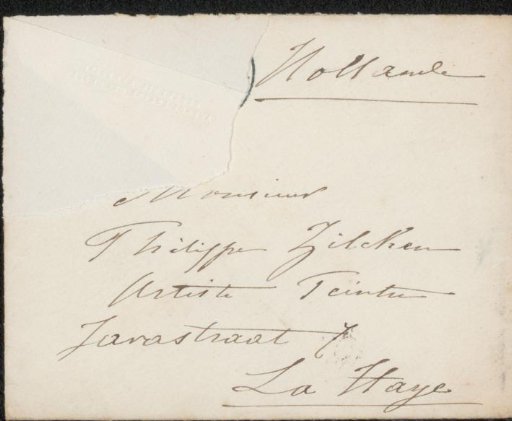 Hollande
Monsieur
Philippe Zilcken
Artiste Peintre
Javastraat 7
La Haye